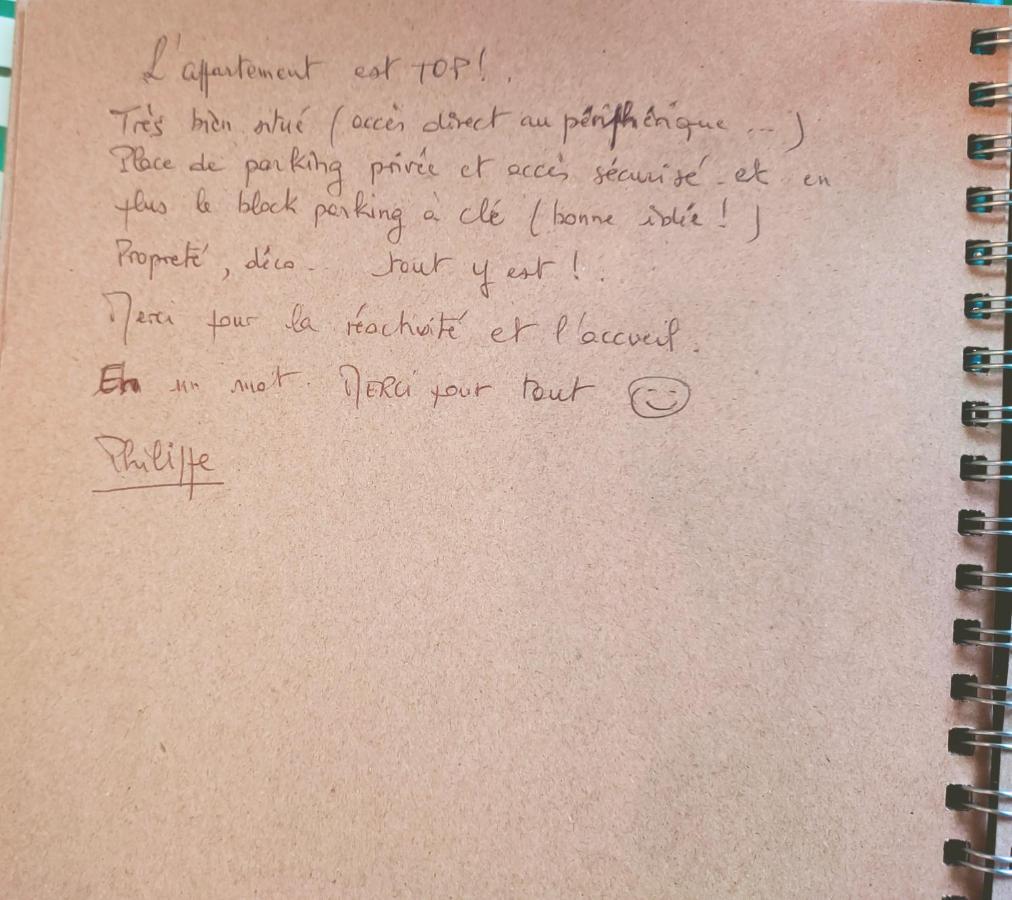 L'appartement est TOP !.
Très bien situé (accès direct au périphérique ... )
Place de parking privée et accès sécurisé et en
plus le block parking à clé (bonne idée ! )
Propreté, déco... tout y est !.
Merci pour la réactivité et l'accueil.
En un mot. MERCI pour tout
Philippe